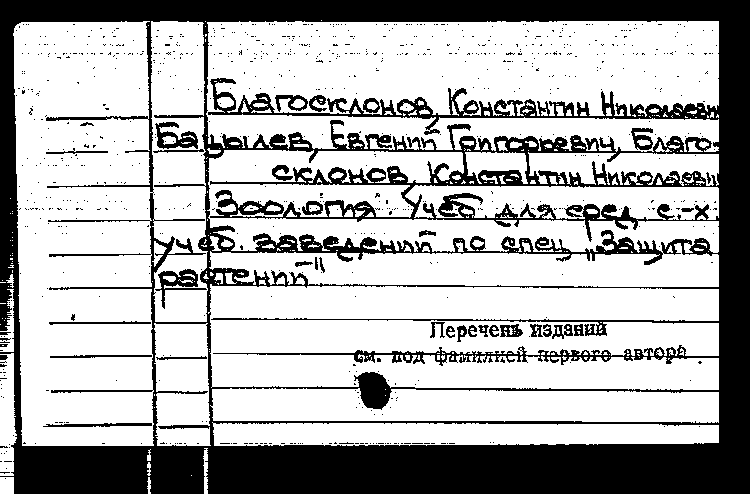 Благосклонов, Константин Николаевич
Бацылев, Евгений Григорьевич, Благо-
склонов, Константин Николаевич
Зоология: Учеб. для сред. с.-х.
учеб. заведений по спец. „Защита
растений".
Перечень изданий
см. под фамилией первого автора.